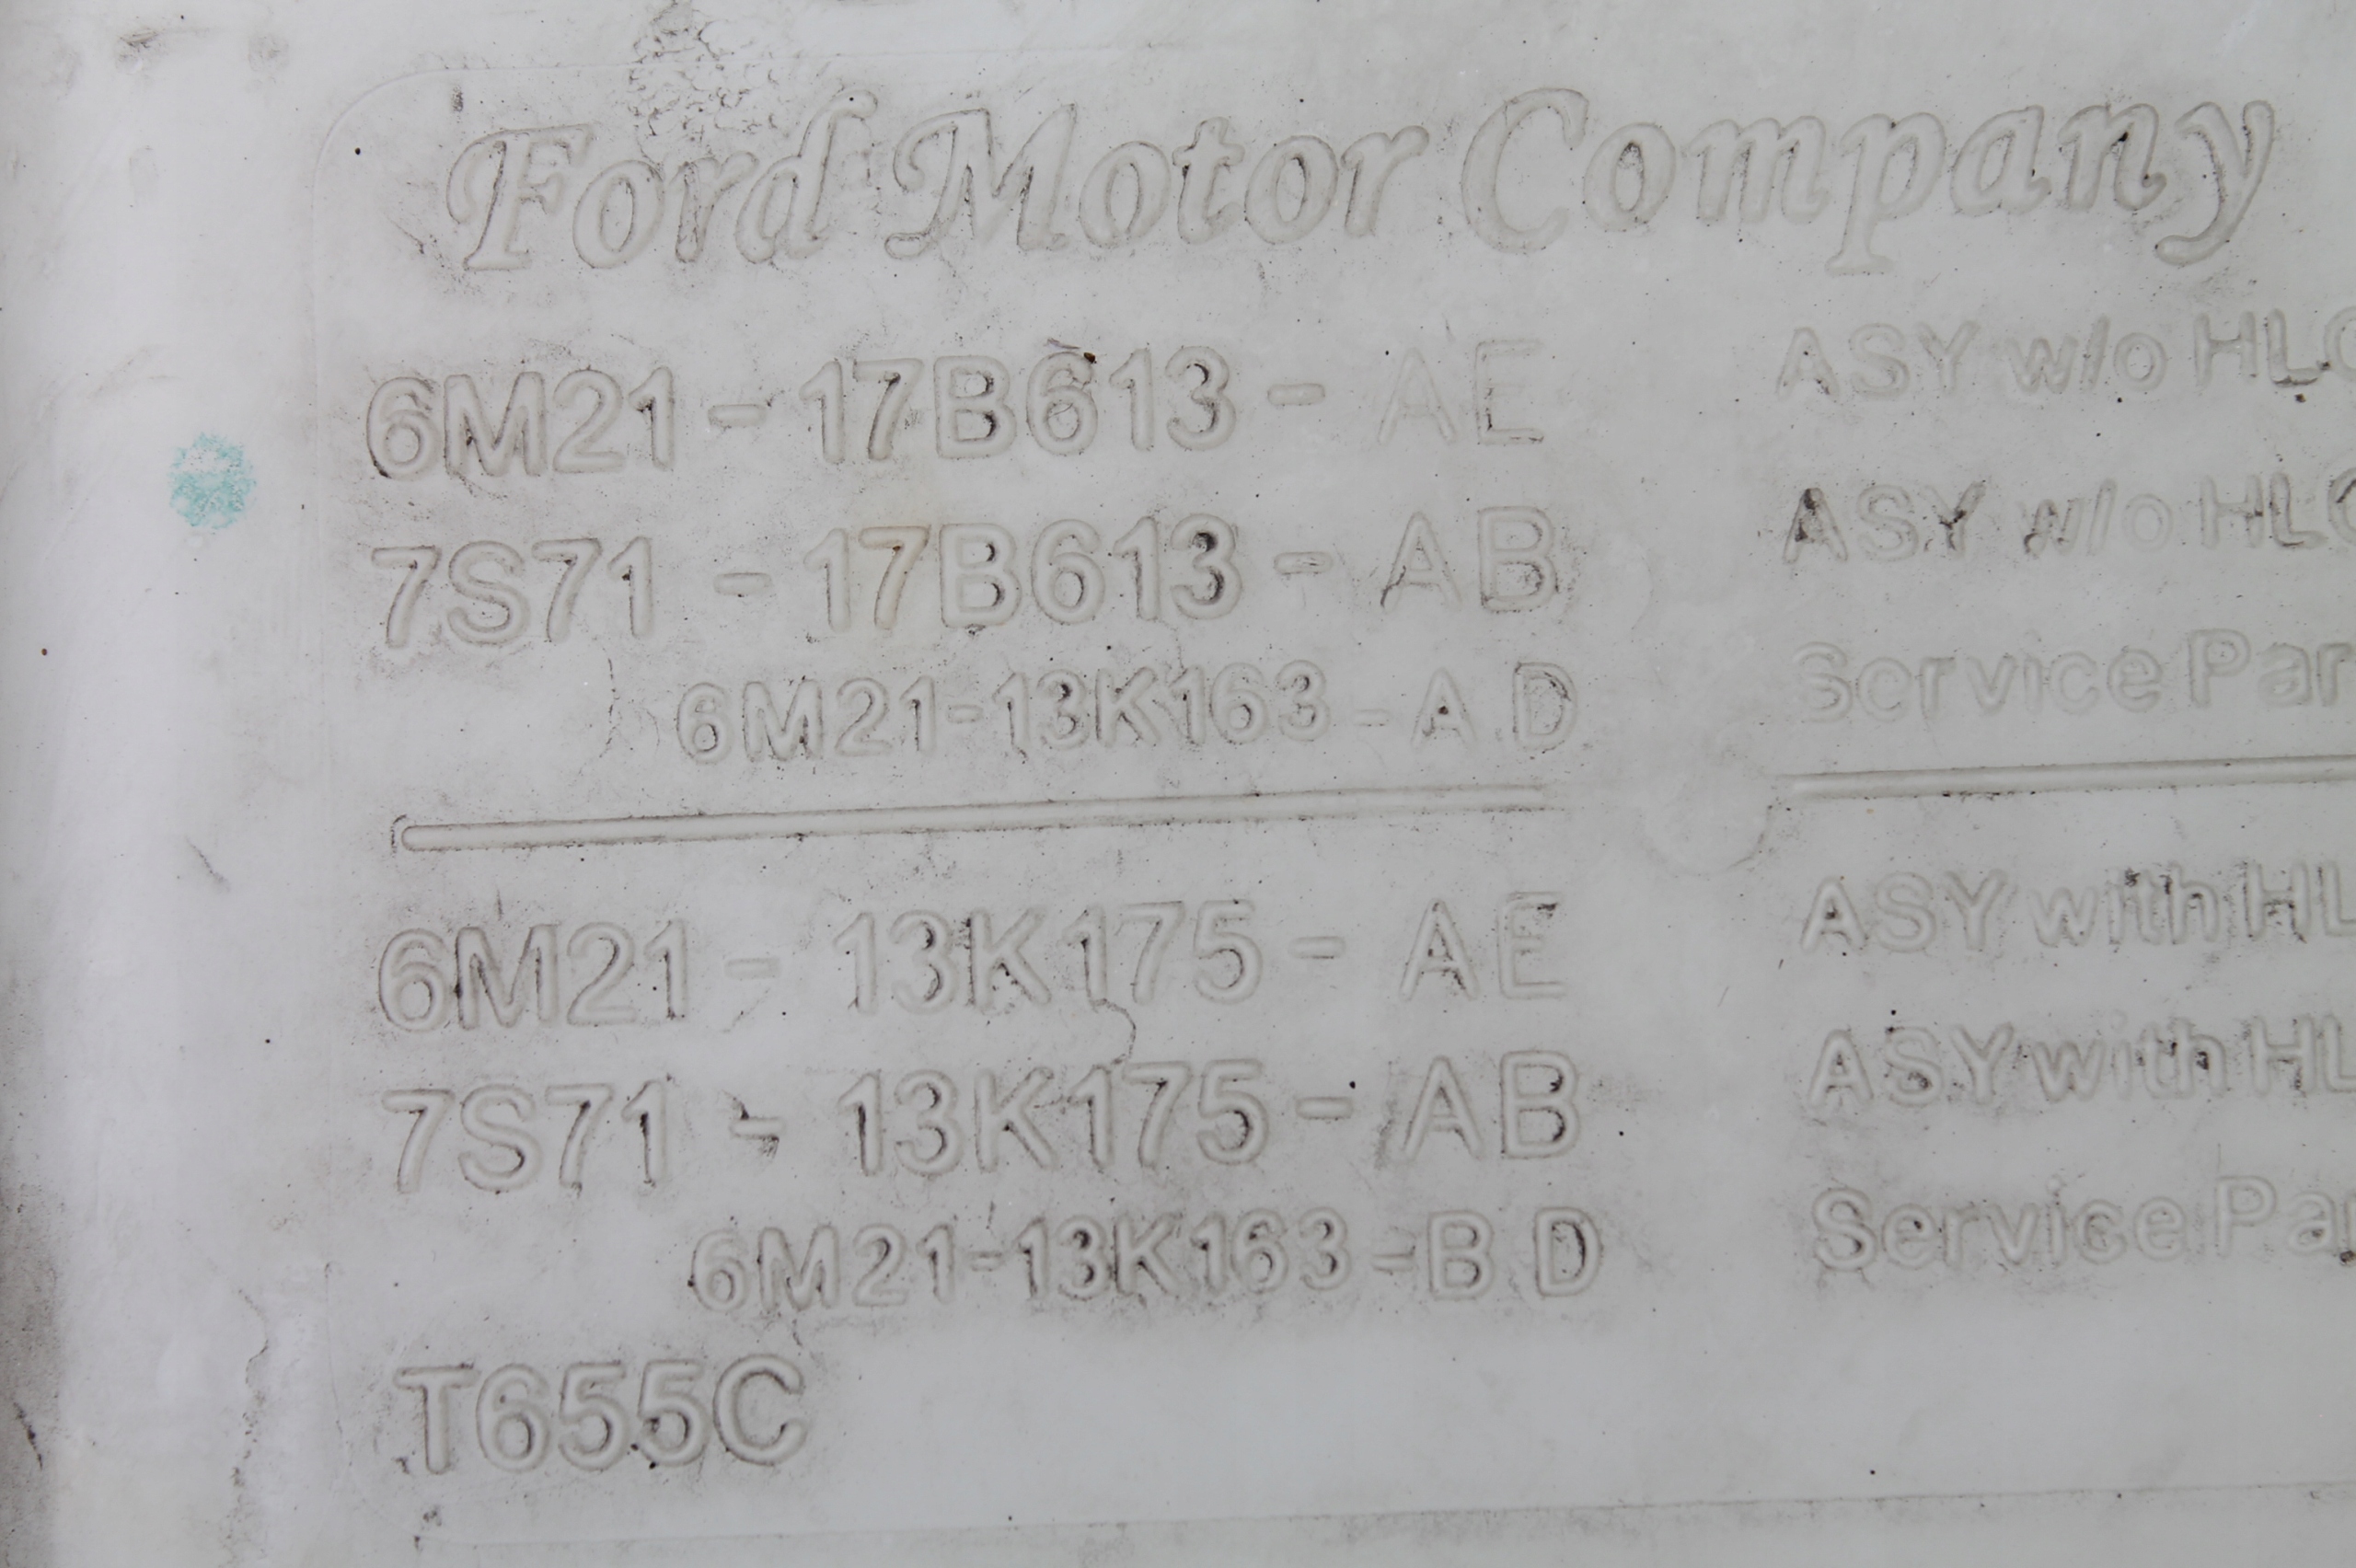 Ford Motor Company
6M21 - 17B613 - AE ASY w/o HLC
7S71 - 17B613 - AB ASY w/o HLC
6M21-13K163 - A D Service Par
6M21 - 13K175 - AE ASY with HL
7S71 - 13K175 - AB ASY with HL
6M21-13K163 - B D Service Par
T655C